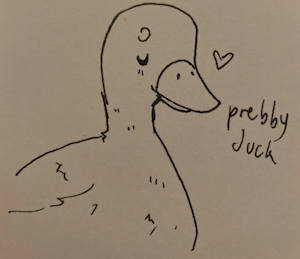 prebby
duck